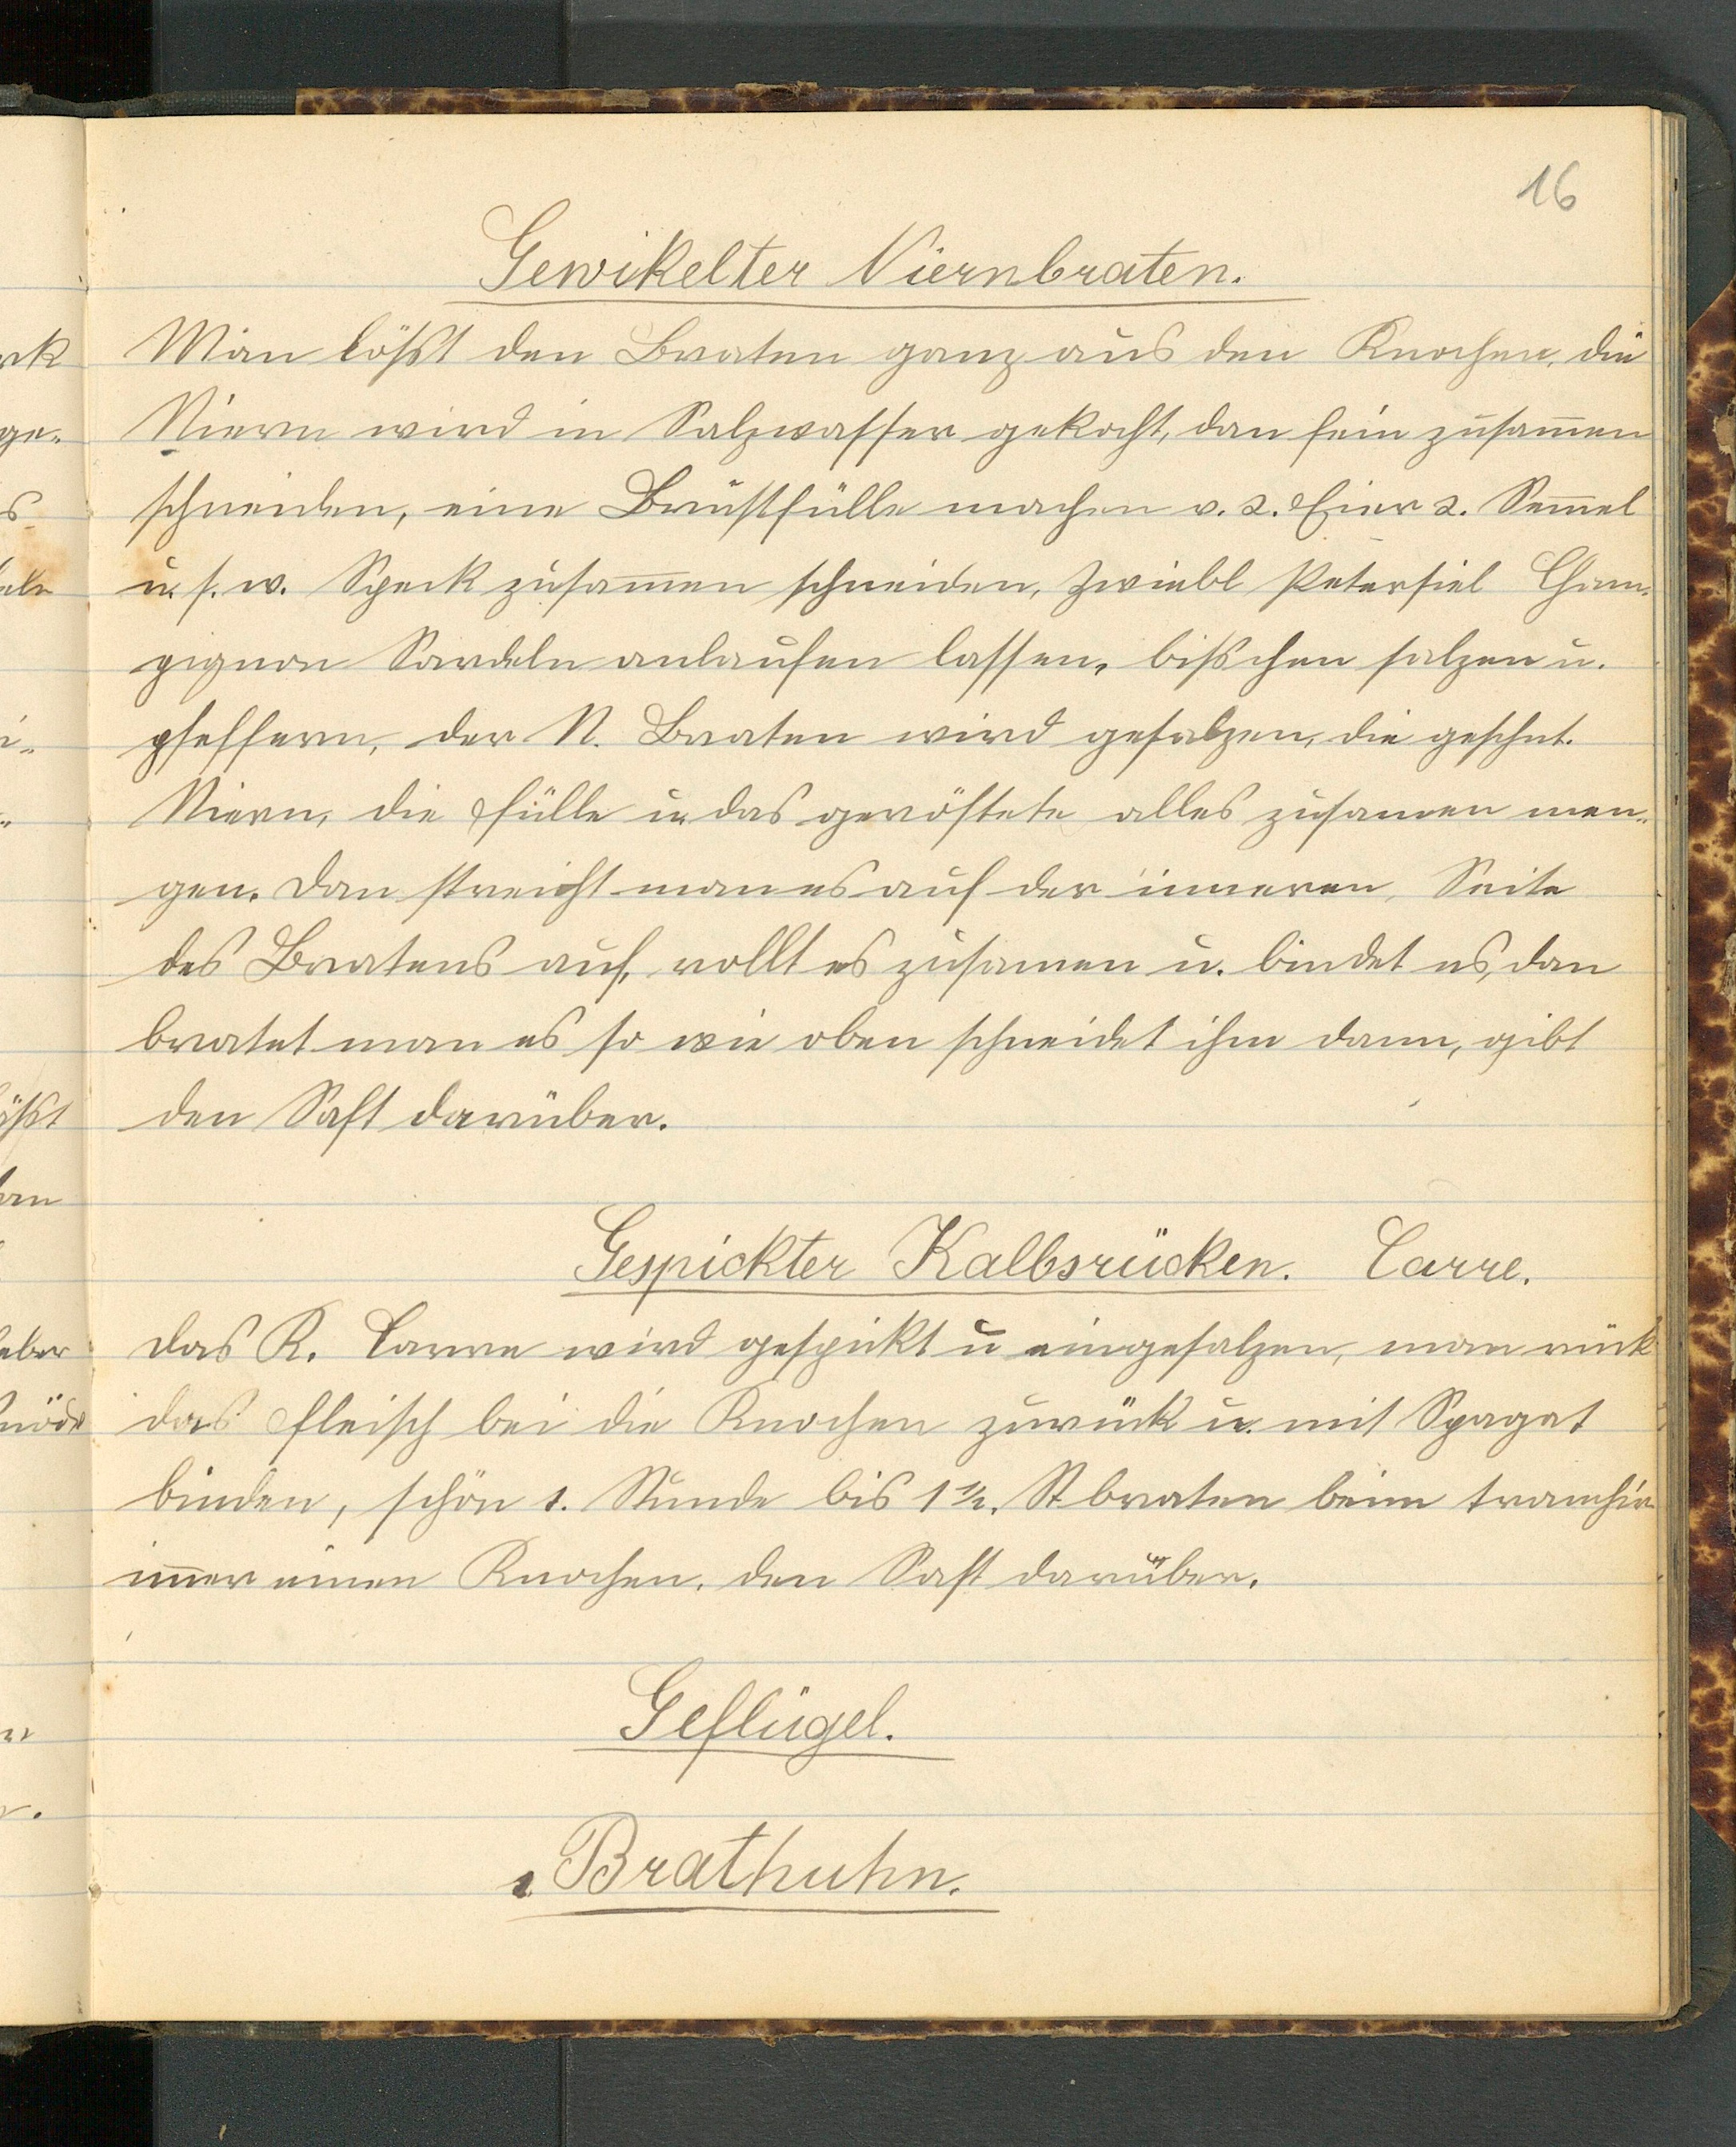 16
Gewikelter Niernbraten.
Man lößt den Braten ganz aus den Knochen, die
Niern wird in Salzwasser gekocht, dan fein zusam̄en
schneiden, eine Brustfülle machen v. 2. Eier 2. Sem̄el
u. s. w. Speck zusam̄en schneiden, Zwiebl Petersiel Cham-
pignon Sardeln anlaufen lassen, bißchen salzen u.
pfeffern, der N. Braten wird gesalzen, die geschnt.
Niern, die Fülle u. das geröstete alles zusamen men-
gen. Dan streicht man es auf der inneren Seite
des Bratens auf, rollt es zusamen u. bindet es, dan
bratet man es so wie oben schneidet ihm dann, gibt
den Saft darüber.
Gespickter Kalbsrücken. Carre.
Das K. Carre wird gespickt u eingesalzen, man rück
das Fleisch bei die Knochen zurück u. mit Spagat
binden, schön 1. Stunde bis 1 ½. St braten beim tranchir
im̄er einen Knochen, den Saft darüber.
Geflügel.
1. Brathuhn.